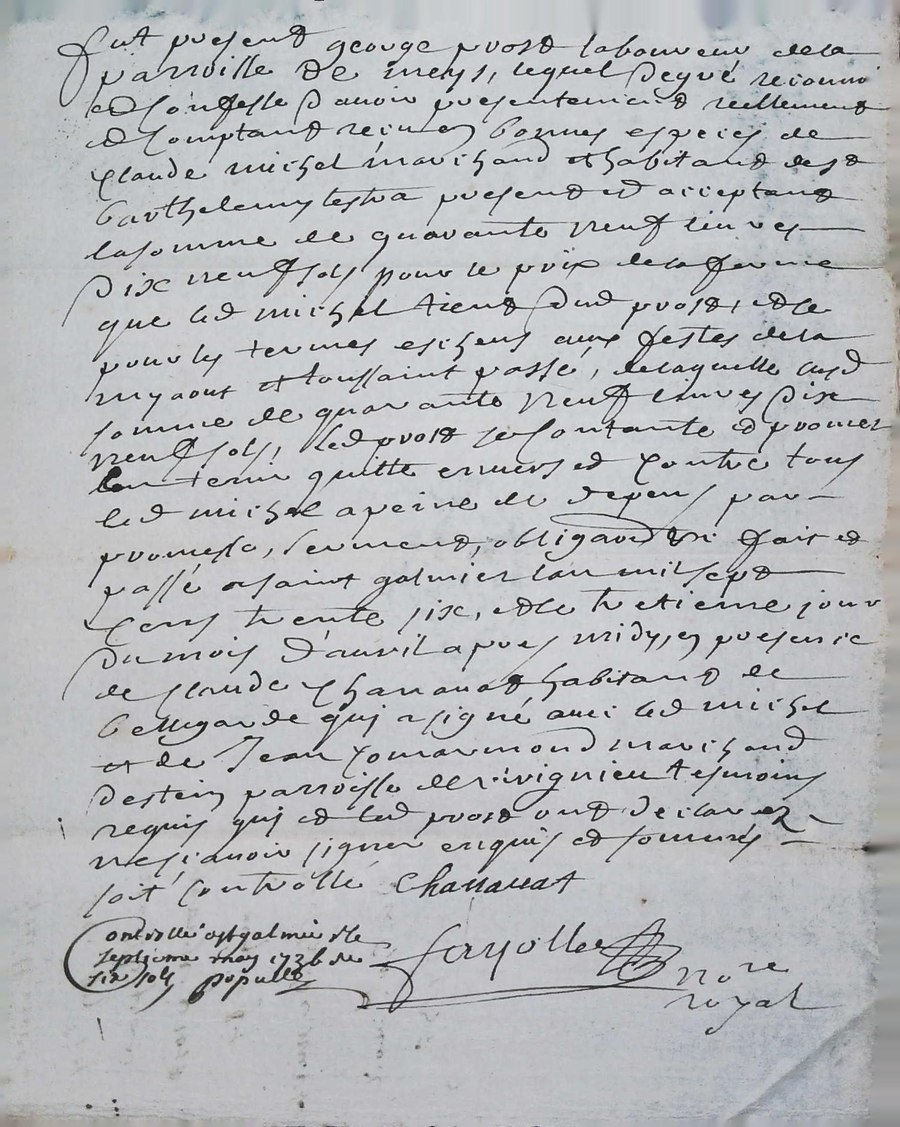 fut present george prost laboureur de la
parroisse de meys, lequel de gré reconnoi
et confesse d'avoir presentement et reellement
et comptant receu en bonnes especes de
claude michel marchand et habitant de st
barthelemy lestra present et acceptant
la somme de quarante neuf livres
dix neuf sols pour le prix de la ferme
que led michel tient dud prost, et ce
pour les termes escheus aux festes de la
my aout et toussaint passé, de laquelle susd
somme de quarante neuf livres dix
neuf sols, led prost se contante et promet
l'en tenir quitte envers et contre tous
led michel a peine de depens par
promesse, serment, obligaõn &c fait et
passé a saint galmier l'an mil sept
cens trente six, et le treizieme jour
du mois d'avril apres midy, en presence
de claude Chanavat habitant de
bellegarde qui a signé avec led michel
et de Jean Comarmond marchand
destein parroisse de virignieu tesmoins
requis qui et led prost ont declarez
ne scavoir signer enquis et sommés
soit controllé Chanavat
Controllé a st galmier le
septieme may 1736 de
six sols populle
fayolle
nore
royal